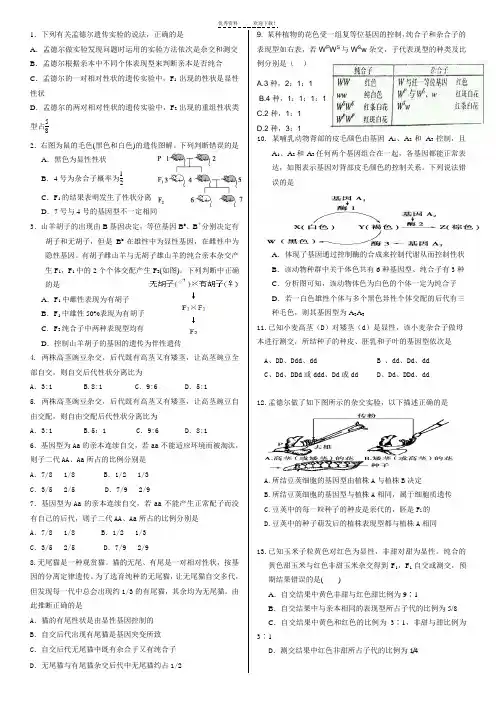 优秀资料 欢迎下载!
1．下列有关孟德尔遗传实验的说法，正确的是
A．孟德尔做实验发现问题时运用的实验方法依次是杂交和测交
B．孟德尔根据亲本中不同个体表现型来判断亲本是否纯合
C．孟德尔的一对相对性状的遗传实验中，F₁出现的性状是显性
性状
D．孟德尔的两对相对性状的遗传实验中，F₂出现的重组性状类
型占5/8
2．右图为鼠的毛色(黑色和白色)的遗传图解。下列判断错误的是
A．黑色为显性性状
B．4号为杂合子概率为1/2
C．F₁的结果表明发生了性状分离
D．7号与4号的基因型不一定相同
P 1 2
F₁ 3 4 5
F₂ 6 7
3．山羊胡子的出现由B基因决定，等位基因Bᵇ、B⁺分别决定有
胡子和无胡子，但是Bᵇ在雄性中为显性基因，在雌性中为
隐性基因。有胡子雌山羊与无胡子雄山羊的纯合亲本杂交产
生F₁，F₁中的2个个体交配产生F₂(如图)。下列判断中正确
的是
无胡子(♂)×有胡子(♀)
F₁×F₁
F₂
A．F₁中雌性表现为有胡子
B．F₁中雄性50%表现为有胡子
C．F₂纯合子中两种表现型均有
D．控制山羊胡子的基因的遗传为伴性遗传
4. 两株高茎豌豆杂交，后代既有高茎又有矮茎，让高茎豌豆全
部自交，则自交后代性状分离比为
A．3:1 B.8:1 C．9:6 D．5:1
5. 两株高茎豌豆杂交，后代既有高茎又有矮茎，让高茎豌豆自
由交配，则自由交配后代性状分离比为
A．3:1 B.5：1 C．9:6 D．8:1
6．基因型为Aa的亲本连续自交，若aa不能适应环境而被淘汰，
则子二代AA、Aa所占的比例分别是
A．7/8 1/8 B．1/2 1/3
C．3/5 2/5 D．7/9 2/9
7．基因型为Aa的亲本连续自交，若aa不能产生正常配子而没
有自己的后代，则子二代AA、Aa所占的比例分别是
A．7/8 1/8 B．1/2 1/3
C．3/5 2/5 D．7/9 2/9
8.无尾猫是一种观赏猫。猫的无尾、有尾是一对相对性状，按基
因的分离定律遗传。为了选育纯种的无尾猫，让无尾猫自交多代，
但发现每一代中总会出现约1/3的有尾猫，其余均为无尾猫。由
此推断正确的是
A．猫的有尾性状是由显性基因控制的
B．自交后代出现有尾猫是基因突变所致
C．自交后代无尾猫中既有杂合子又有纯合子
D．无尾猫与有尾猫杂交后代中无尾猫约占1/2
9. 某种植物的花色受一组复等位基因的控制，纯合子和杂合子的
表现型如右表，若WᴾWˢ与Wˢw杂交，子代表现型的种类及比
例分别是（ ）
纯合子 杂合子
WW 红色 W与任一等位基因 红色
ww 纯白色 Wᴾ与Wˢ、w 红斑白花
WˢWˢ 红条白花 Wˢw 红条白花
WᴾWᴾ 红斑白花
A.3种，2：1：1
B.4种，1：1：1：1
C.2种，1：1
D.2种，3：1
10．某哺乳动物背部的皮毛颜色由基因A₁、A₂和A₃控制，且
A₁、A₂和A₃任何两个基因组合在一起，各基因都能正常表
达，如图表示基因对背部皮毛颜色的控制关系。下列说法错
误的是
基因A₁
酶1
基因A₂
酶2
X(白色) Y(褐色) Z(棕色)
W(黑色) 酶3 基因A₃
A．体现了基因通过控制酶的合成来控制代谢从而控制性状
B．该动物种群中关于体色共有6种基因型、纯合子有3种
C．分析图可知，该动物体色为白色的个体一定为纯合子
D．若一白色雄性个体与多个黑色异性个体交配的后代有三
种毛色，则其基因型为A₂A₃
11.已知小麦高茎（D）对矮茎（d）是显性，该小麦杂合子做母
本进行测交，所结种子的种皮、胚乳和子叶的基因型依次是
A、DD、Ddd、dd B、dd、Dd、dd
C、Dd、DDd或ddd、Dd或dd D、Dd、DDd、dd
12.孟德尔做了如下图所示的杂交实验，以下描述正确的是
传粉
P 去雄
A.高茎(或矮茎)的花 B.矮茎(或高茎)的花
种子
A.所结豆荚细胞的基因型由植株A与植株B决定
B.所结豆荚细胞的基因型与植株A相同，属于细胞质遗传
C.豆荚中的每一粒种子的种皮是亲代的，胚是F₁的
D.豆荚中的种子萌发后的植株表现型都与植株A相同
13.已知玉米子粒黄色对红色为显性，非甜对甜为显性。纯合的
黄色甜玉米与红色非甜玉米杂交得到F₁，F₁自交或测交，预
期结果错误的是( )
A．自交结果中黄色非甜与红色甜比例为9∶1
B．自交结果中与亲本相同的表现型所占子代的比例为5/8
C．自交结果中黄色和红色的比例为3∶1，非甜与甜比例为
3∶1
D．测交结果中红色非甜所占子代的比例为1/4